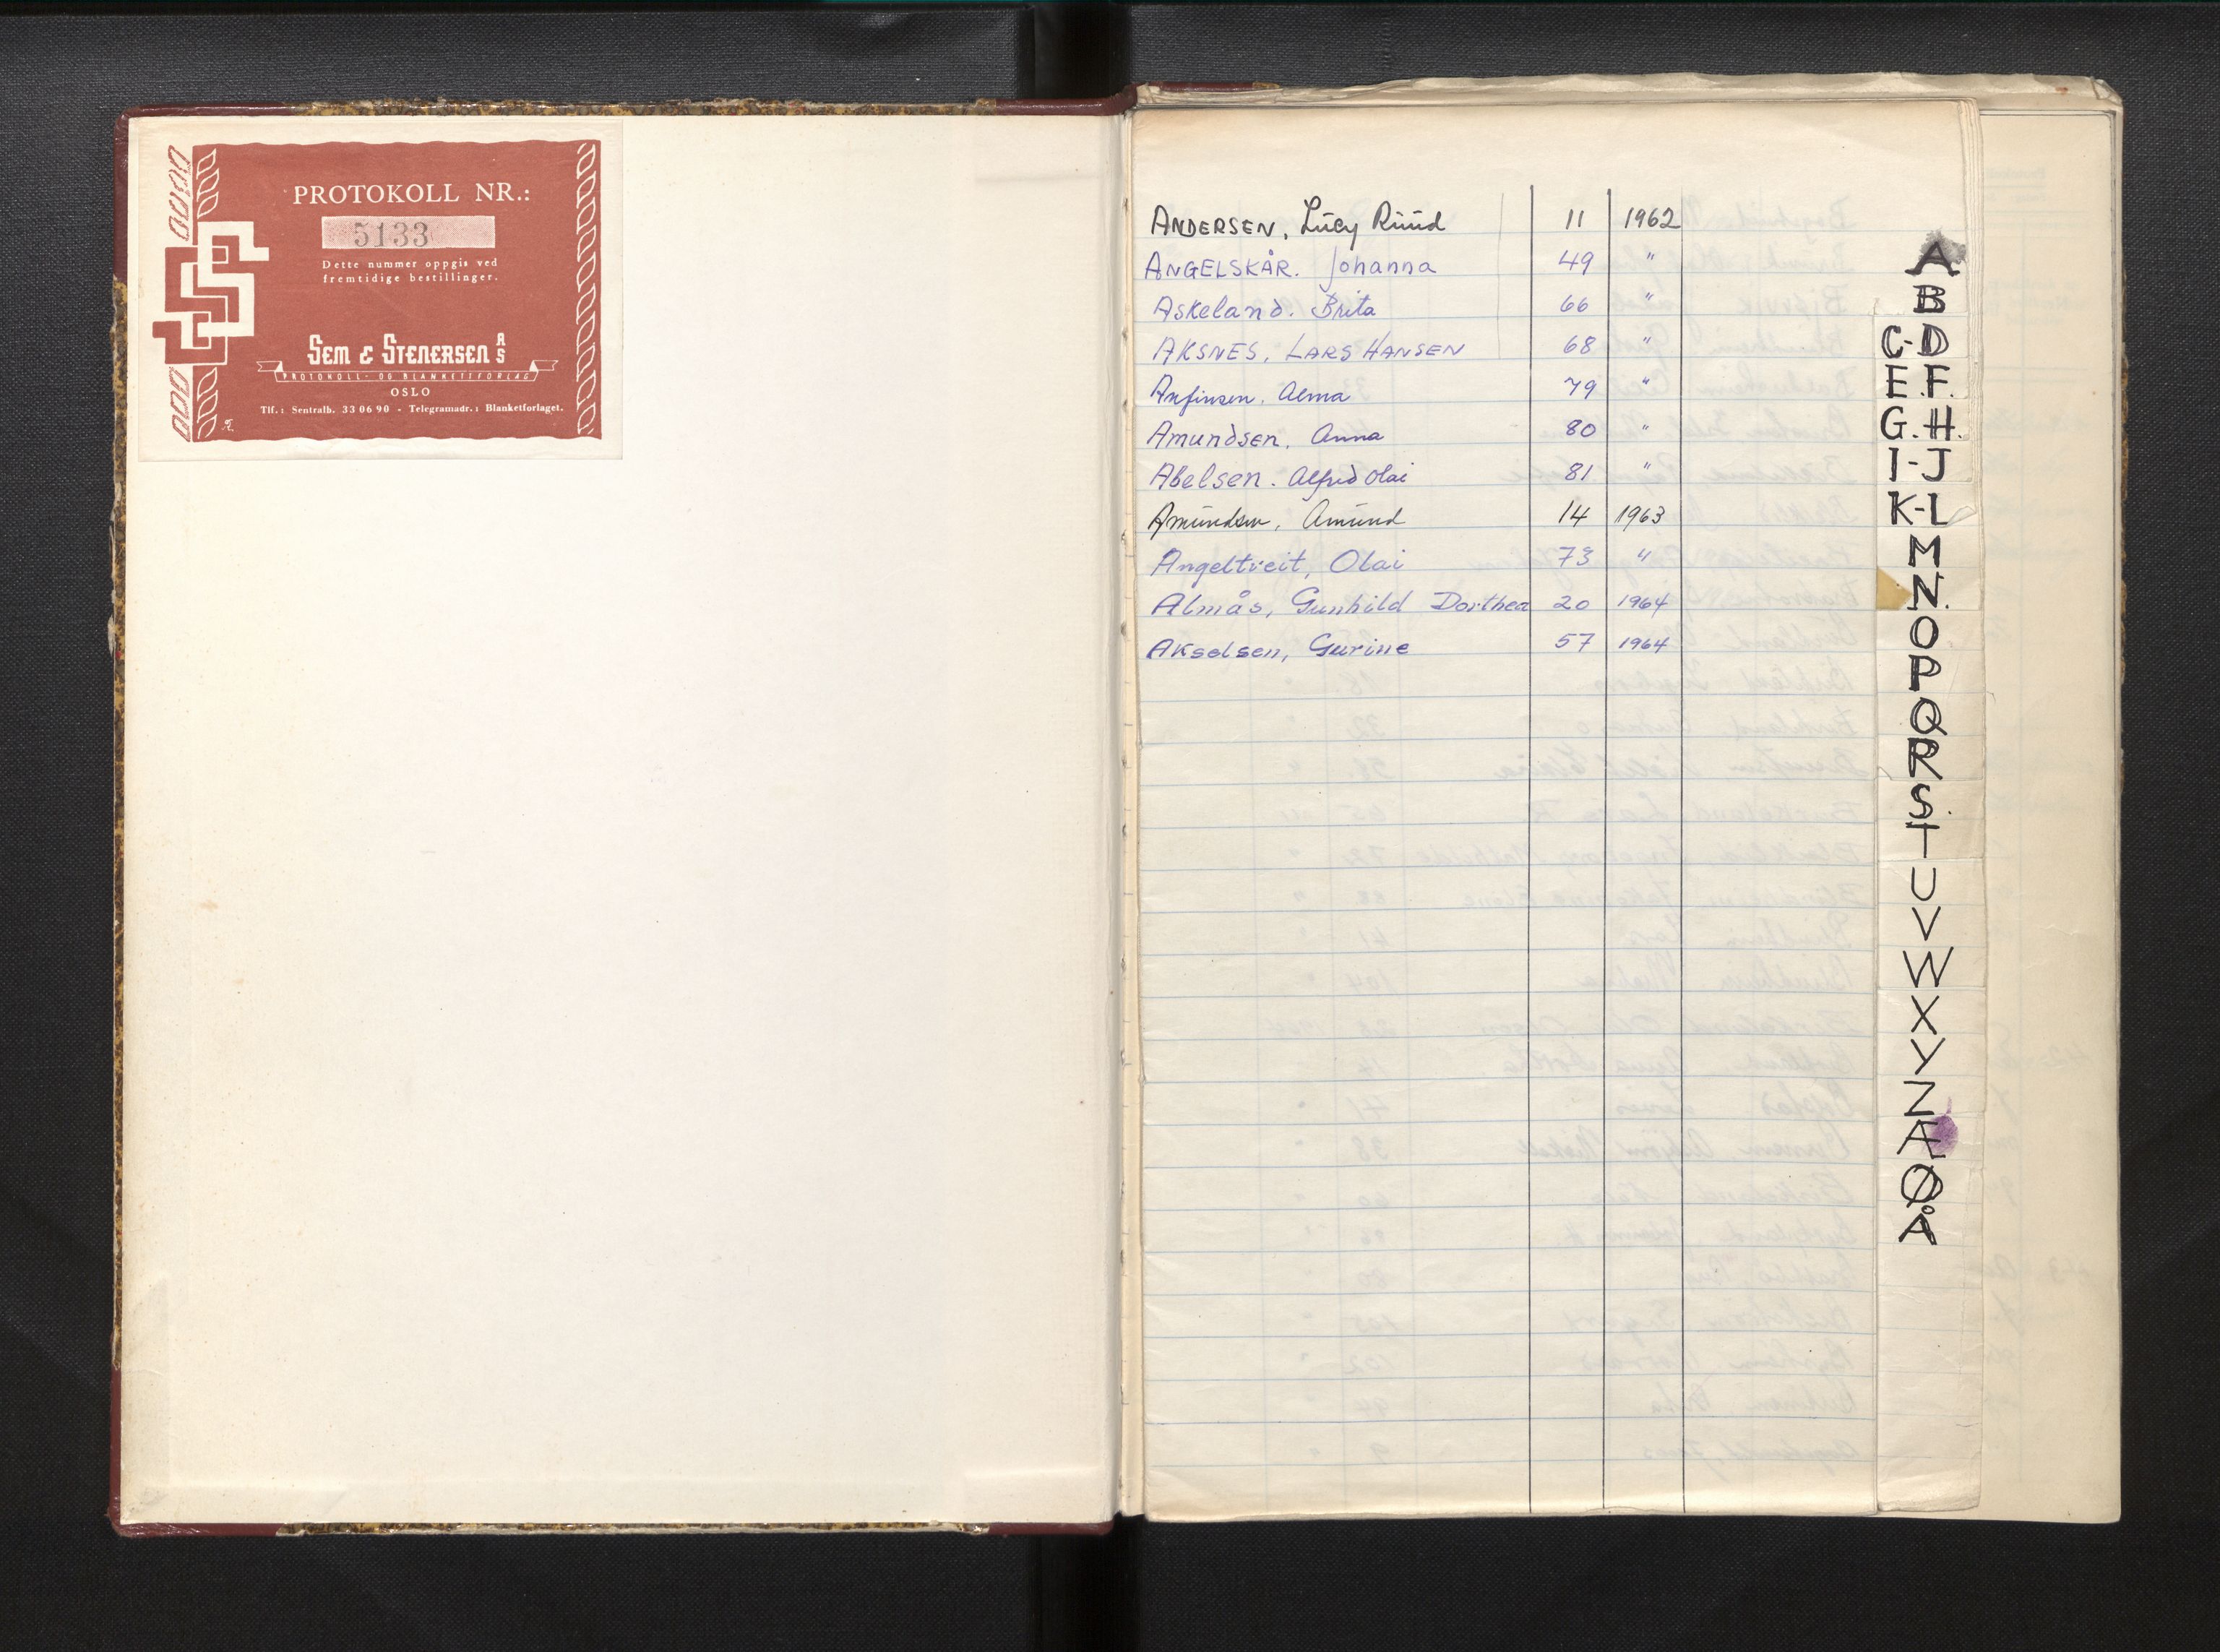 PROTOKOLL NR.:
5133
Dette nummer oppgis ved
fremtidige bestillinger.
SEM & STENERSEN A/S
PROTOKOLL- OG BLANKETTFORLAG
OSLO
Tlf.: Sentralb. 33 06 90 - Telegramadr.: Blanketforlaget.
ANDERSEN, Lucy Ruud 11 1962
ANGELSKÅR. Johanna 49 "
Askeland. Brita 66 "
AKSNES, LARS HANSEN 68 "
Anfinsen. Alma 79 "
Amundsen. Anna 80 "
Abelsen. Alfred Olai 81 "
Amundsen, Amund 14 1963
Angeltveit, Olai 73 "
Almås, Gunhild Dorthea 20 1964
Akselsen, Gurine 57 1964
A
B
C-D
E.F.
G.H.
I-J
K-L
M
N.
O
P
Q
R
S
T
U
V
W
X
Y
Z
Æ
Ø
Å